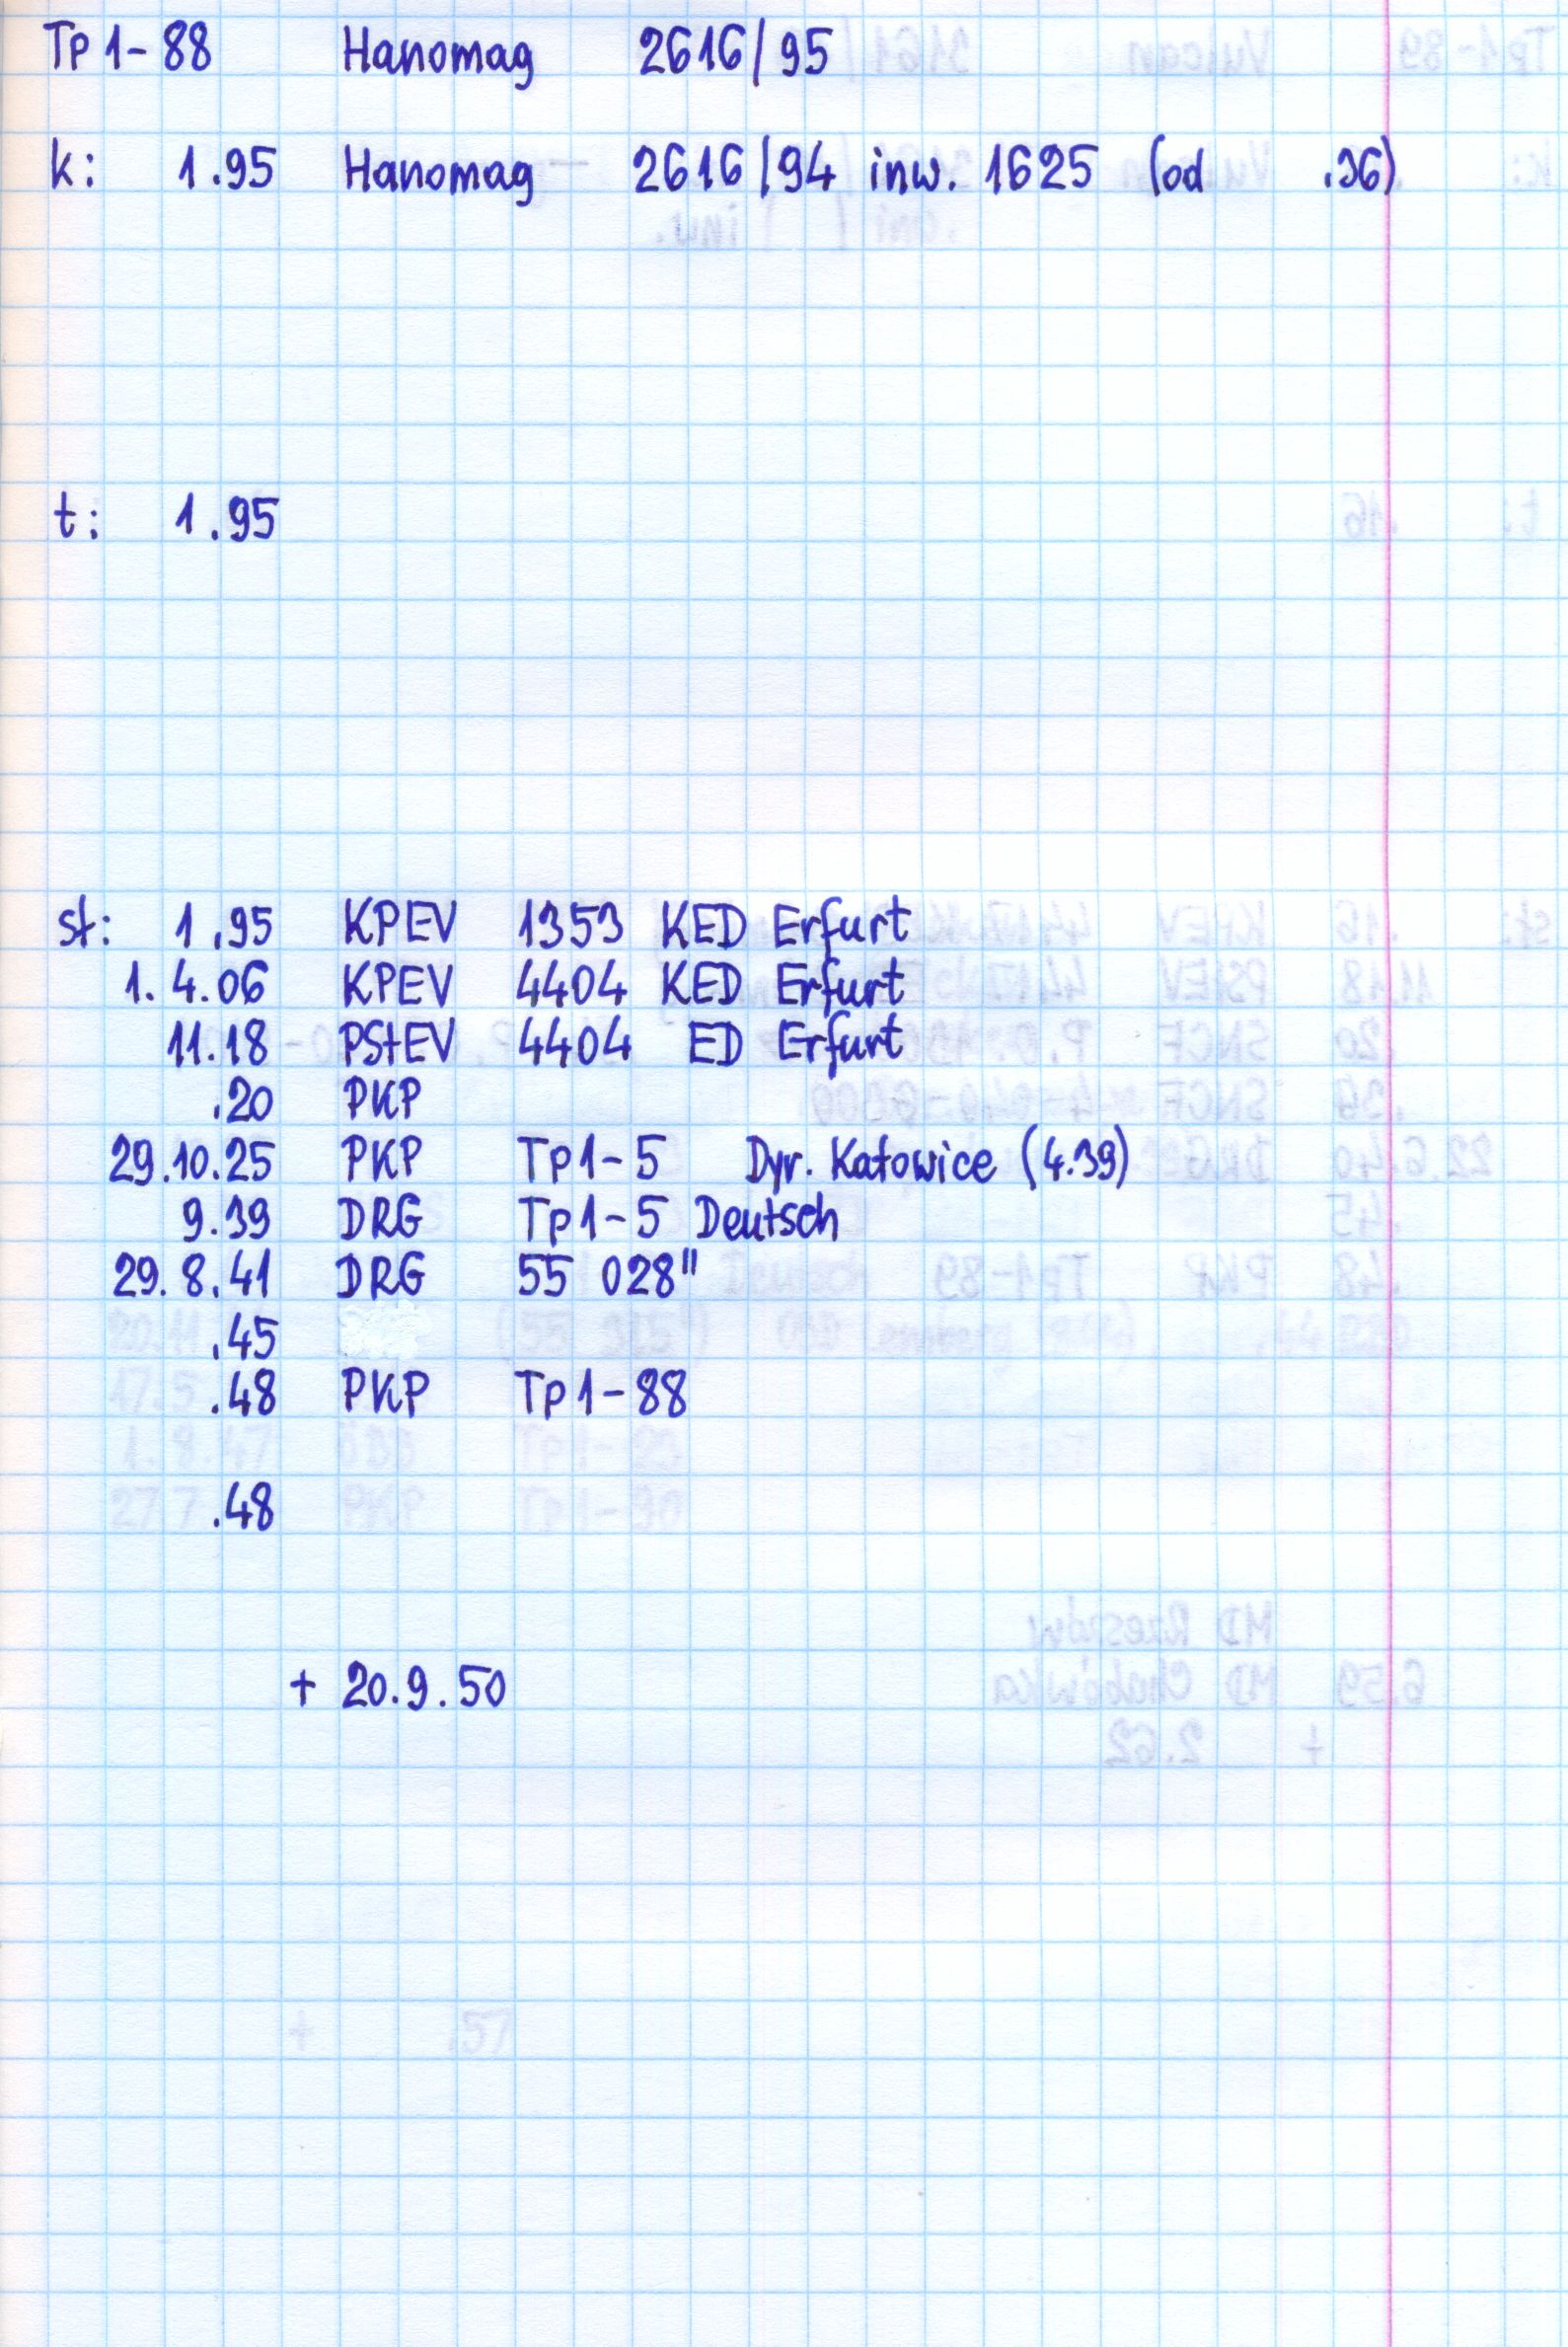 Tp 1-88 Hanomag 2616/95
k: 1.95 Hanomag 2616/94 inw. 1625 (od .36)
t: 1.95
st: 1.95 KPEV 1353 KED Erfurt
1.4.06 KPEV 4404 KED Erfurt
11.18 PStEV 4404 ED Erfurt
.20 PKP
29.10.25 PKP Tp1-5 Dyr. Katowice (4.39)
9.39 DRG Tp1-5 Deutsch
29.8.41 DRG 55 028"
.45
.48 PKP Tp1-88
.48
+ 20.9.50